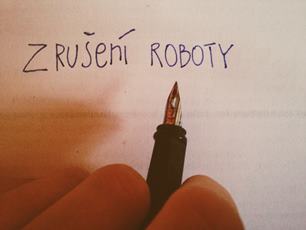 Zrušení ROBOTY